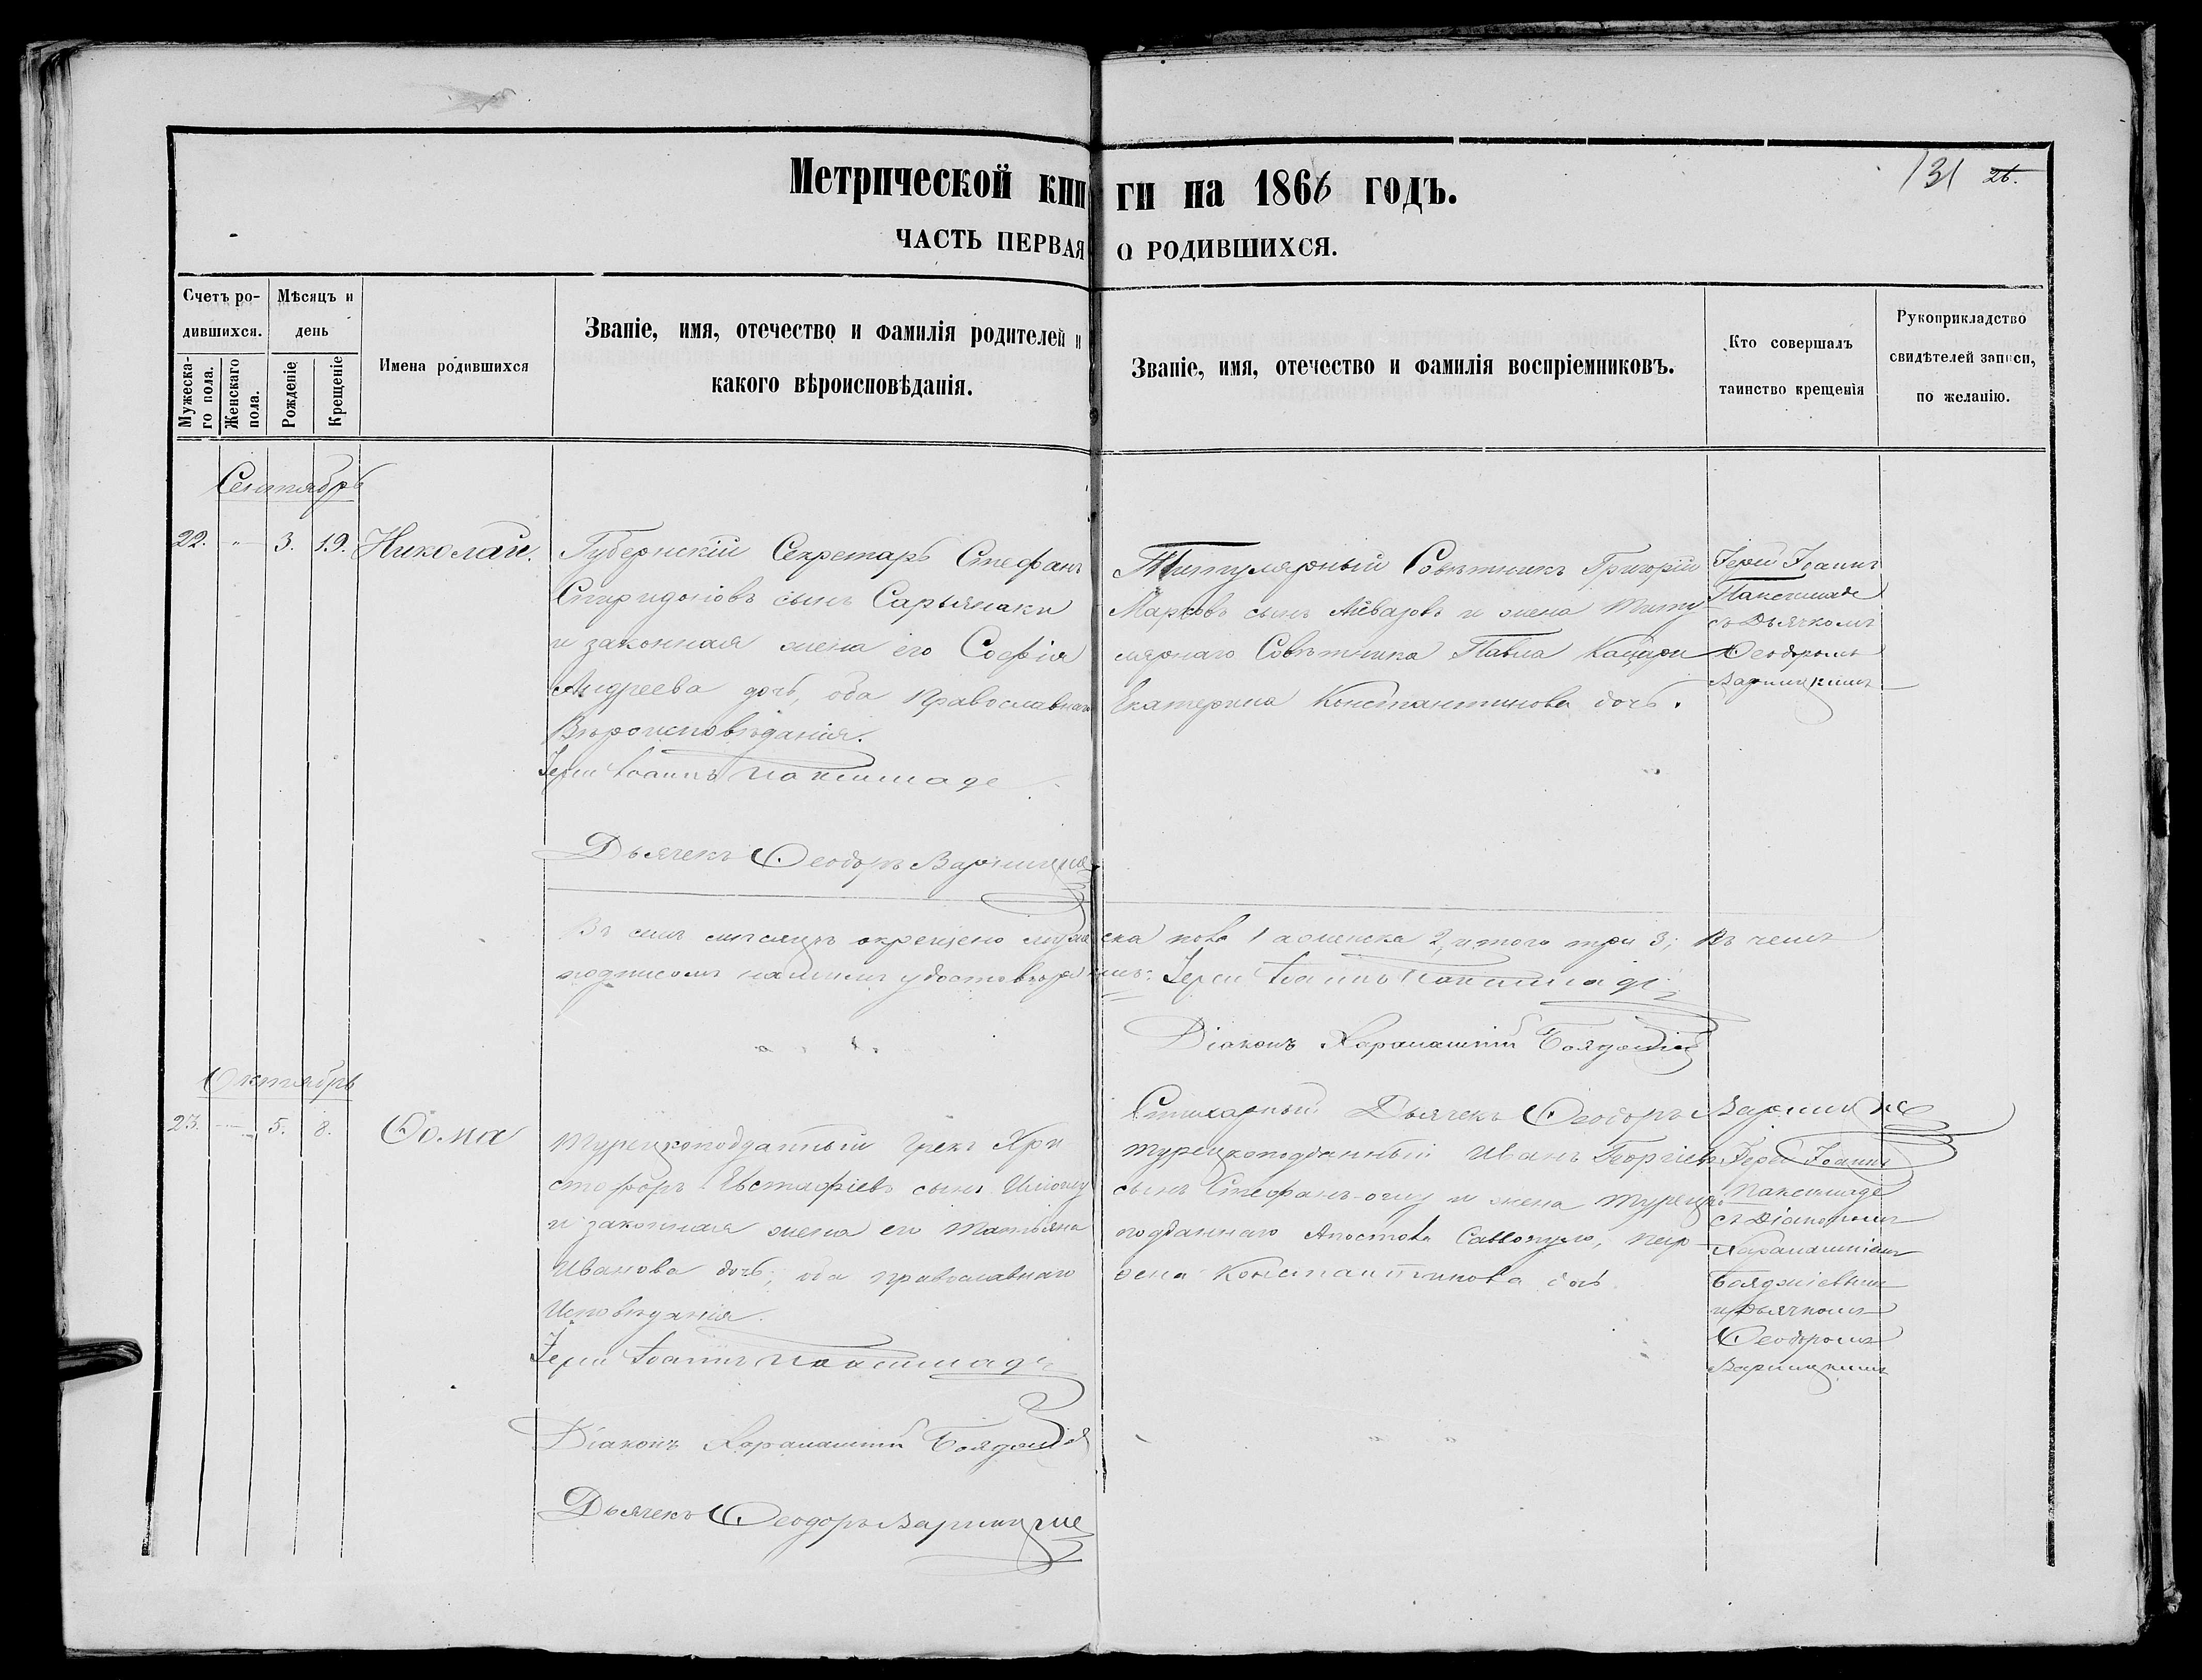 131 26.
Метрической книги на 1866 годъ.
ЧАСТЬ ПЕРВАЯ О РОДИВШИХСЯ.
Счетъ родившихся.
Мужескаго пола.
Женскаго пола.
Мѣсяцъ и день
Рожденіе
Крещеніе
Имена родившихся
Званіе, имя, отечество и фамилія родителей и
какого вѣроисповѣданія.
Званіе, имя, отечество и фамилія воспріемниковъ.
Кто совершалъ
таинство крещенія
Рукоприкладство
свидѣтелей записи,
по желанію.
Сентябрь
22. " 3. 19. Николай.
Губернскій Секретарь Стефанъ
Спиридоновъ сынъ Сарыянаки
и законная жена его Софія
Андреева дочь, оба Православнаго
Вѣроисповѣданія.
Іерей Іоаннъ Паксимаде
Дьячекъ Ѳеодоръ Варницкій
Титулярный Совѣтникъ Григорій
Марковъ сынъ Айвазовъ и жена Титу
лярнаго Совѣтника Павла Кацари
Екатерина Константинова дочь.
Іерей Іоаннъ
Паксимаде
съ Дьячкомъ
Ѳеодоромъ
Варницкимъ
Въ семъ мѣсяцѣ окрещено мужеска пола 1 а женска 2, итого три 3; Въ чемъ
подписомъ нашимъ удостовѣряемъ: Іерей Іоаннъ Паксимаде
Діаконъ Харалампій
Стихарный Дьячекъ Ѳеодоръ Варницкій
Октябрь
23. 5. 8. Ѳома
Турецкоподданный Грекъ Хри
стофоръ Евстафіевъ сынъ
и законная жена его Татьяна
Иванова дочь, оба православнаго
Исповѣданія.
Іерей Іоаннъ Паксимаде
Діаконъ Харалампій
Дьячекъ Ѳеодоръ Варницкій
турецкоподданный Иванъ Георгіевъ
сынъ Стефанъ-оглу и жена Турецко
подданнаго Апостола Саввопуло,
Константинова дочь
Іерей Іоаннъ
Паксимаде
съ Діакономъ
Харалампіемъ
и Дьячкомъ
Ѳеодоромъ
Варницкимъ